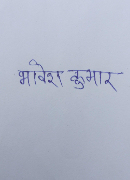 भावेश कुमार